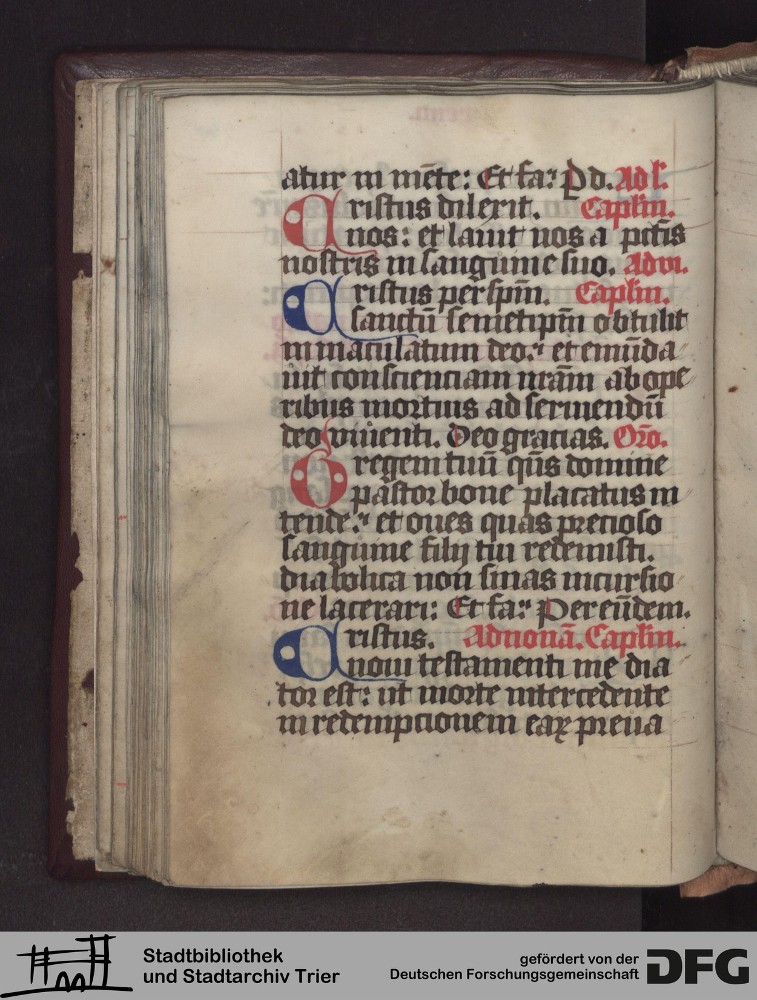 atur in mēte: Et fa: P d. Ad l.
Cristus dilexit. Caplm.
nos: et lauit nos a pctīs
nostris in sanguine suo. Ad vi.
Cristus per spm̄. Caplm.
sanctū semetipm̄ obtulit
inmaculatum deo: et emūda
uit conscienciam nrām ab ope
ribus mortuis ad seruiendū
deo viuenti. Deo gracias. Orō.
Gregem tuū qūs domine
pastor bone placatus in
tende: et oues quas precioso
sanguine filij tui redemisti.
diabolica non sinas incursio
ne lacerari: Et fa: Per eūdem.
Cristus. Ad nonā. Caplm.
noui testamenti me dia
tor est: ut morte intercedente
in redempcionem eaꝝ preua
Stadtbibliothek
und Stadtarchiv Trier
gefördert von der
Deutschen Forschungsgemeinschaft
DFG